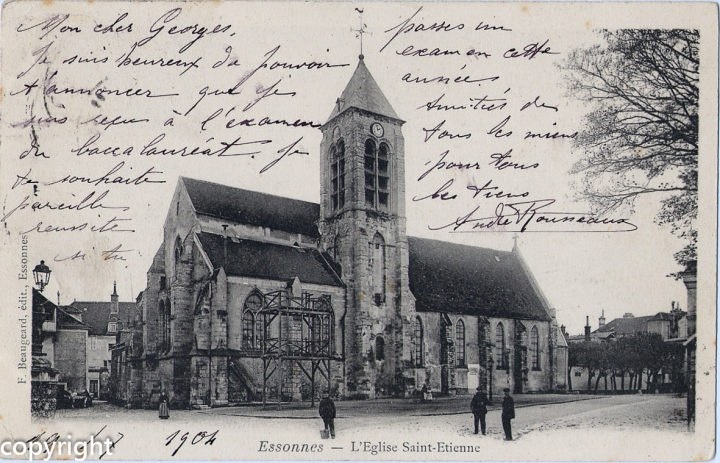 Mon cher Georges,
Je suis heureux de pouvoir
t'annoncer que je
suis reçu à l'examen
du baccalauréat. Je
te souhaite
pareille
réussite
si tu
passes un
examen cette
année.
Amitiés de
tous les miens
pour tous
les tiens
André Rousseaux
F. Beaugeard, édit., Essonnes
1904
Essonnes — L'Eglise Saint-Etienne
copyright